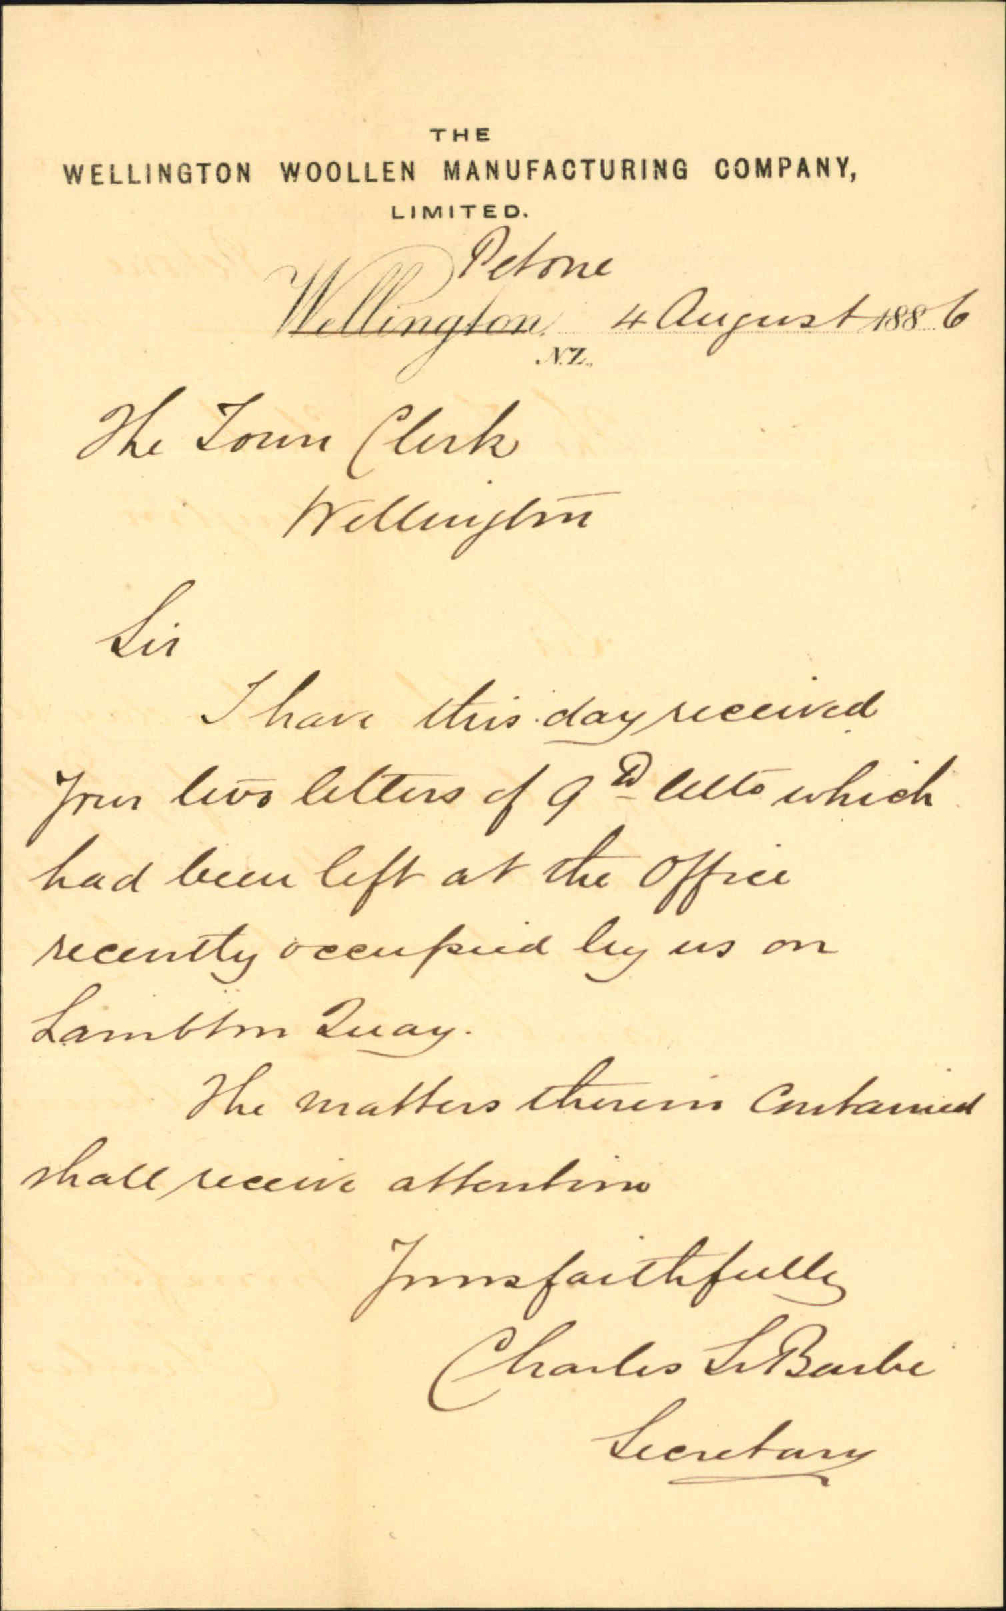 THE
WELLINGTON WOOLLEN MANUFACTURING COMPANY,
LIMITED.
Petone
Wellington, 4 August 1886
N.Z.,
The Town Clerk
Wellington
Sir
I have this day received
Your two letters of 9th which
had been left at the Office
recently occupied by us on
Lambton Quay.
The matters therein contained
shall receive attention
Yours faithfully
Charles Le Barbe
Secretary